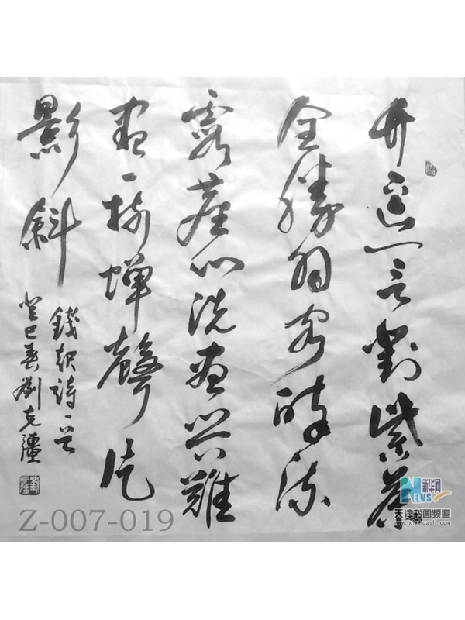 竹下忘言對紫茶
全勝羽客醉流
霞塵心洗盡興難
盡一樹蟬聲片
影斜
錢起詩一首
癸巳春劉克
Z-007-019
新华网
NEWS